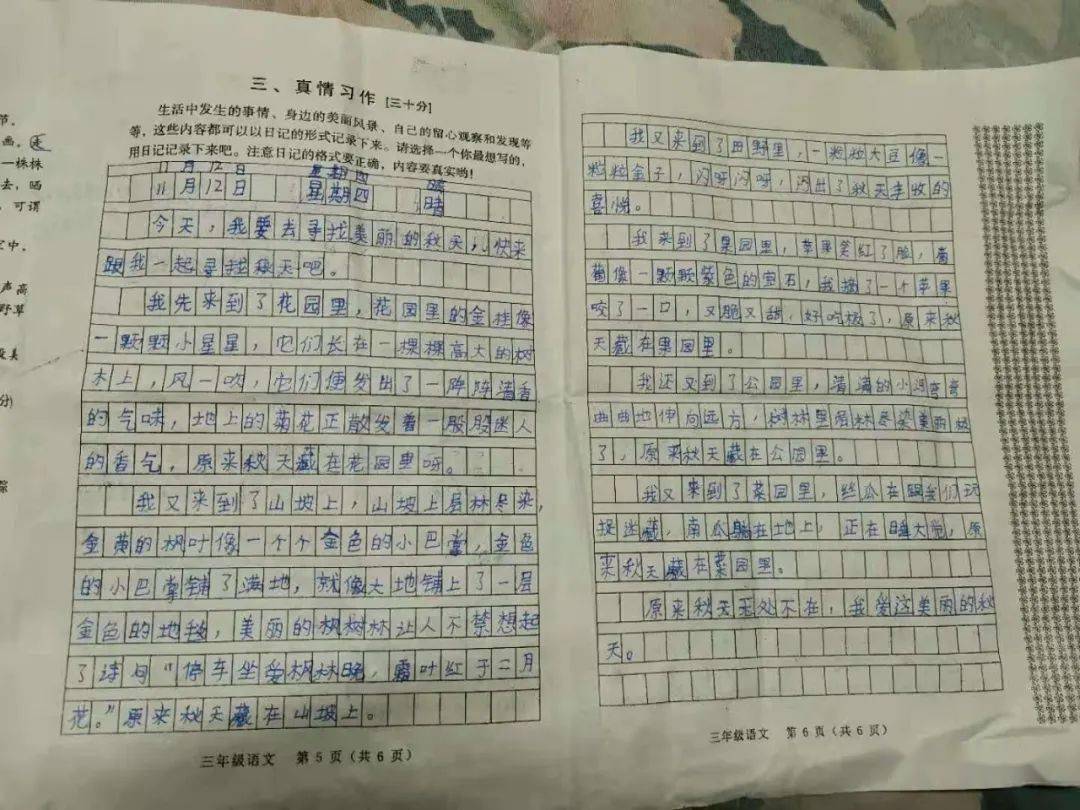 节。
画。
一株株
去，晒
可谓
它中，
声高
野草
美
分
三、真情习作 [三十分]
生活中发生的事情、身边的美丽风景、自己的留心观察和发现等
等，这些内容都可以以日记的形式记录下来。请选择一个你最想写的，
用日记记录下来吧。注意日记的格式要正确，内容要真实哟！
11月12日 星期四 晴
11月12日 星期四 晴
今天，我要去寻找美丽的秋天，快来
跟我一起寻找秋天吧。
我先来到了花园里，花园里的金桂像
一颗颗小星星，它们长在一棵棵高大的树
木上，风一吹，它们便发出了一阵阵清香
的气味，地上的菊花正散发着一股股迷人
的香气，原来秋天藏在花园里呀。
我又来到了山坡上，山坡上层林尽染，
金黄的枫叶像一个个金色的小巴掌，金色
的小巴掌铺了满地，就像大地铺上了一层
金色的地毯，美丽的枫树林让人不禁想起
了诗句“停车坐爱枫林晚，霜叶红于二月
花。”原来秋天藏在山坡上。
三年级语文 第5页（共6页）
我又来到了田野里，一粒粒大豆像一
粒粒金子，闪呀闪呀，闪出了秋天丰收的
喜悦。
我来到了果园里，苹果笑红了脸，葡
萄像一颗颗紫色的宝石，我摘了一个苹果
咬了一口，又脆又甜，好吃极了，原来秋
天藏在果园里。
我还又到了公园里，清清的小河弯弯
曲曲地伸向远方，树林里层林尽染美丽极
了，原来秋天藏在公园里。
我又来到了菜园里，丝瓜在跟我们玩
捉迷藏，南瓜躺在地上，正在睡大觉，原
来秋天藏在菜园里。
原来秋天无处不在，我爱这美丽的秋
天。
三年级语文 第6页（共6页）